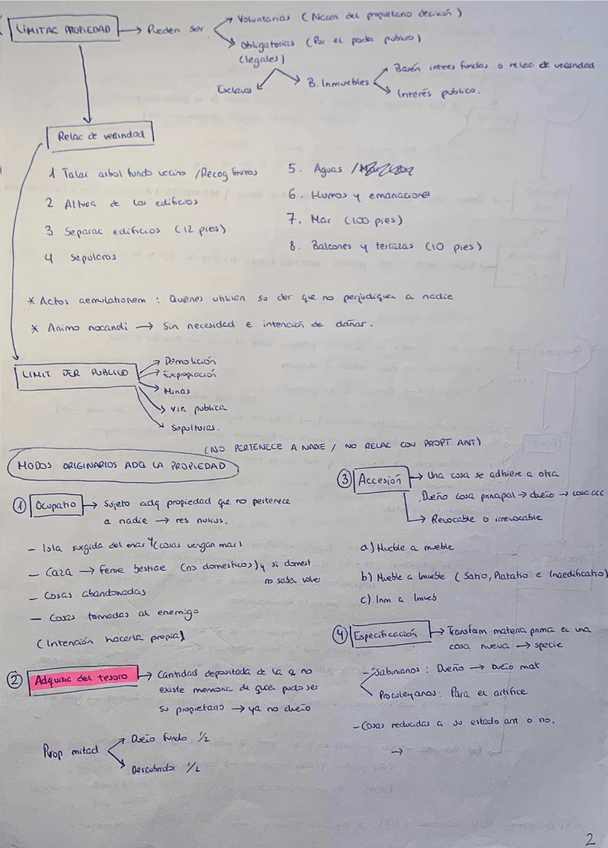 LIMITAC PROPIEDAD → Pueden ser
Voluntarias (Nacen del propietario decisión)
Obligatorias (Por el poder publico)
(legales)
Esclavos
B. Inmuebles
Basan interes fundos o relac de vecindad
Interés publico.
Relac de vecindad
1 Talar arbol fundo vecino / Recog frutos
2 Altura de los edificios
3 Separac edificios (12 pies)
4 Sepulcros
5. Aguas /
6. Humos y emanaciones
7. Mar (100 pies)
8. Balcones y terrazas (10 pies)
* Actos aemulationem : Quienes utilicen su der que no perjudiquen a nadie
* Animo nocandi → Sin necesidad e intención de dañar.
LIMIT DER PUBLICO
→ Demolición
→ Expropiación
→ Minas
→ via publica
→ Sepulturas.
(NO PERTENECE A NADIE / NO RELAC CON PROPT ANT)
MODOS ORIGINARIOS ADQ LA PROPIEDAD
① Ocupatio → Sujeto adq propiedad que no pertenece
a nadie → res nulius.
- Isla surgida del mar y (cosas vengan mar)
- Caza → Ferae bestiae (no domesticos) y si domest
no sabe volver
- Cosas abandonadas
- Cosas tomadas al enemigo
(Intención hacerla propia)
② Adquisic del tesoro → Cantidad depositada de la q no
existe memoria de quien pudo ser
su propietario → ya no dueño
Prop mitad
Dueño fundo 1/2
Descubridor 1/2
③ Accesión → Una cosa se adhiere a otra
Dueño cosa principal → dueño → cosa acc
→ Revocable o irrevocable
a) Mueble a mueble
b) Mueble a Inmueble (Satio, Plantatio e Inaedificatio)
c) Inm a Inmueb
④ Especificación → Transform materia prima en una
cosa nueva → specie
- Sabinianos : Dueño → Dueño mat
Proculeyanos : Para el artifice
- Cosas reducidas a su estado ant o no.
→
2